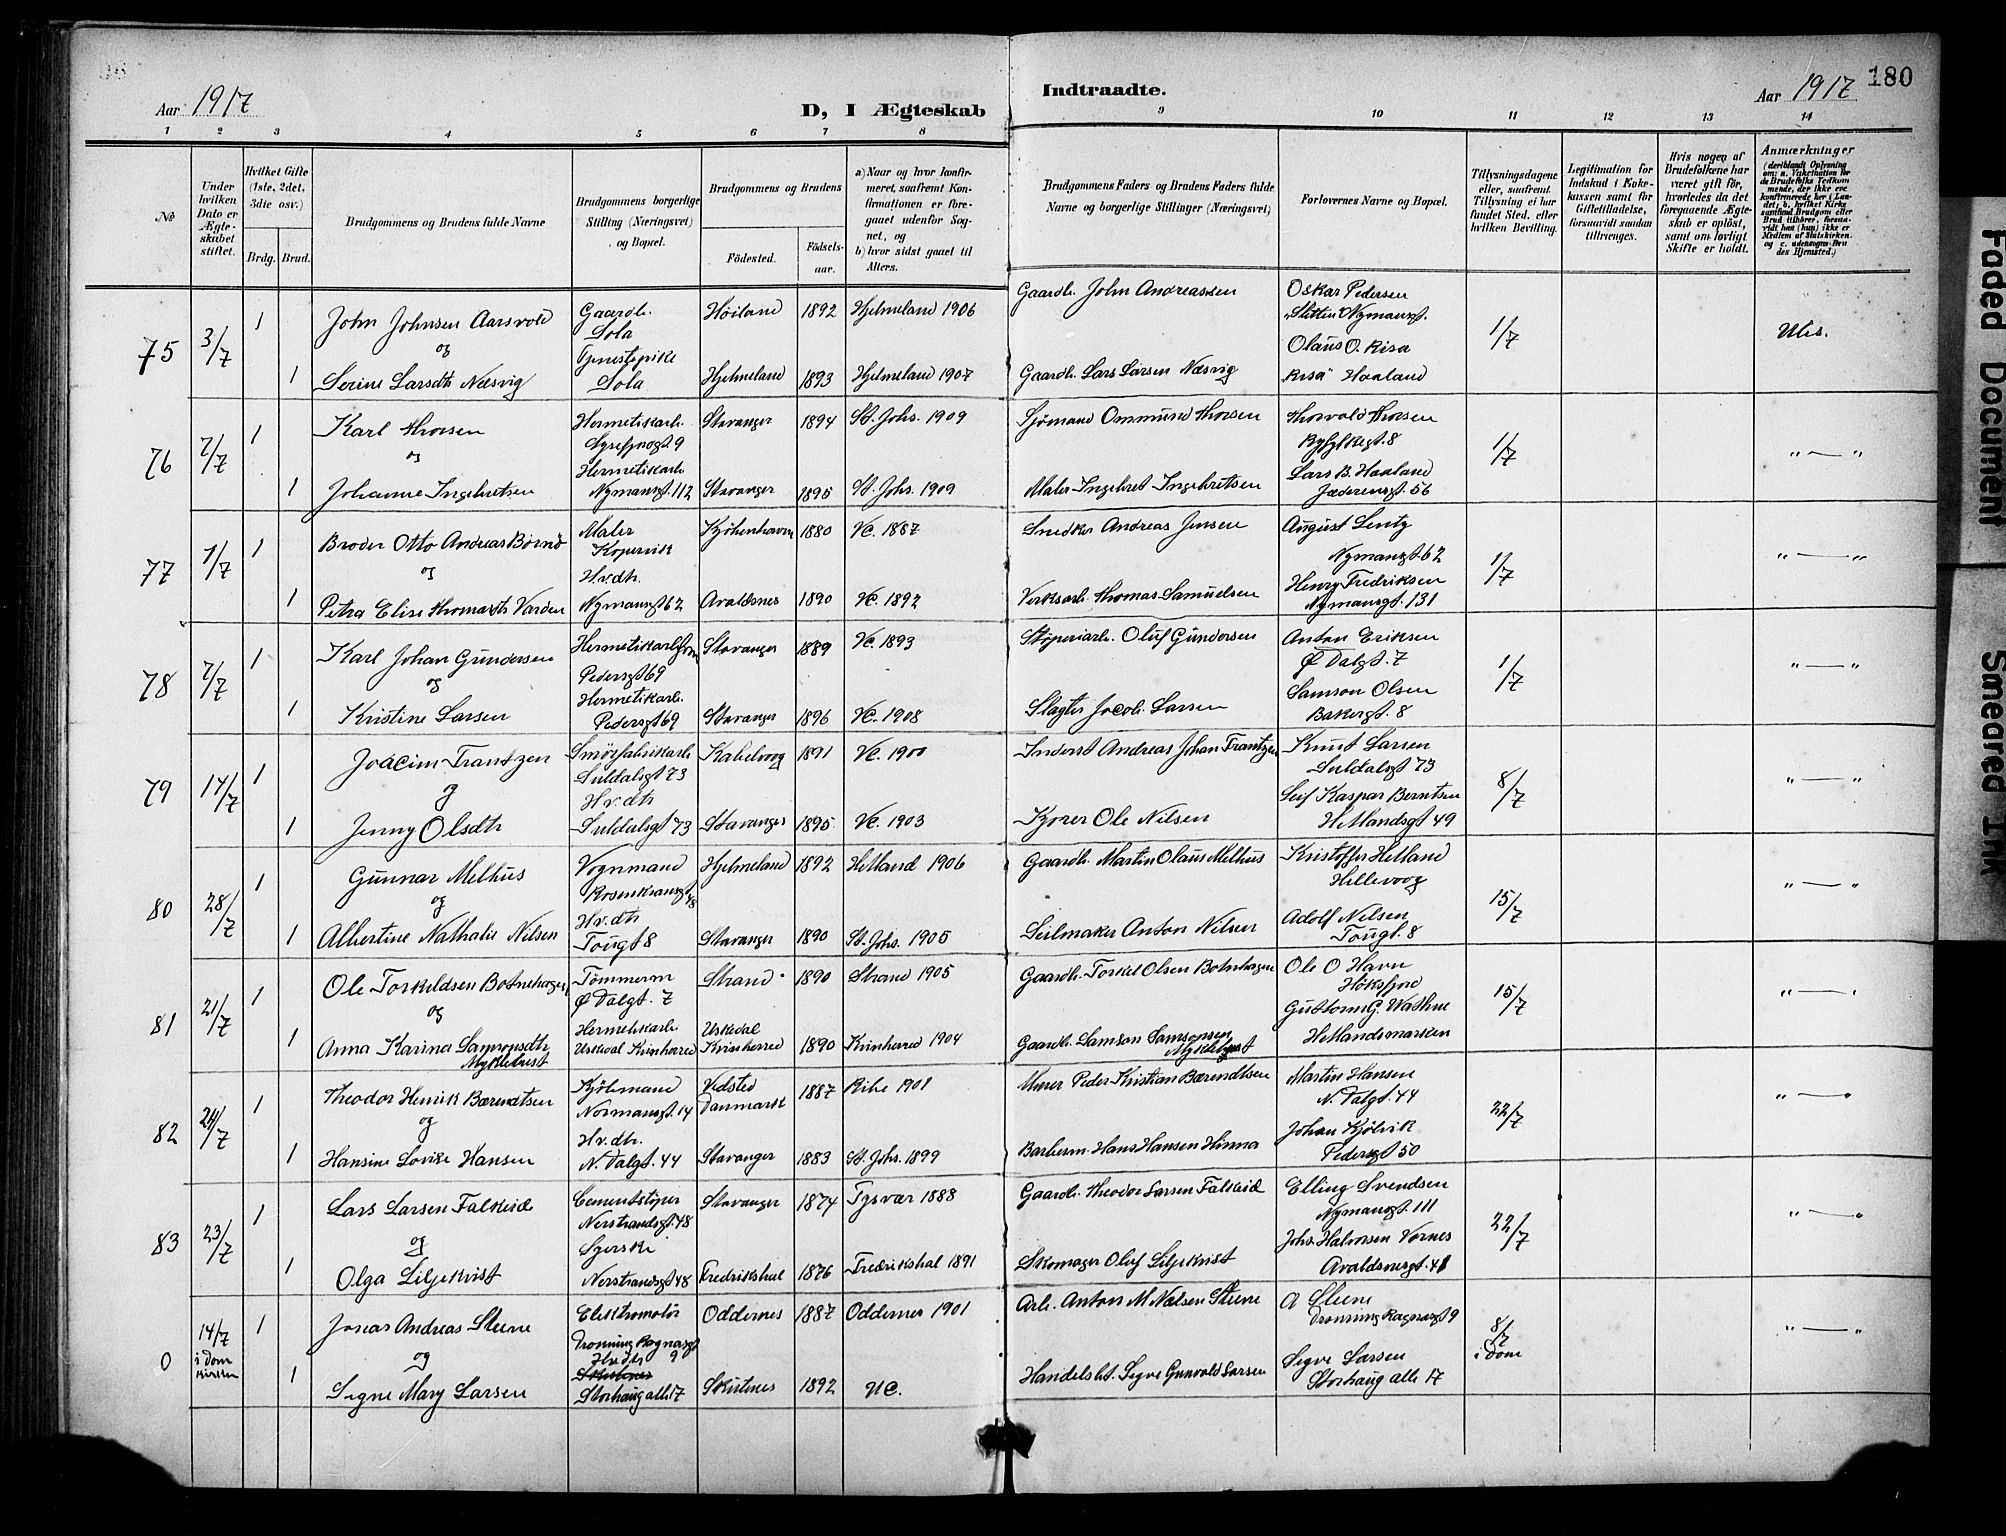 180
Aar 1917
D, I Ægteskab
Indtraadte.
Aar 1917
1 2 3 4 5 6 7 8 9 10 11 12 13 14
No
Under hvilken Dato er Ægteskabet stiftet.
Hvilket Gifte (1ste, 2det, 3die osv.)
Brdg. Brud.
Brudgommens og Brudens fulde Navne
Brudgommens borgerlige Stilling (Næringsvei) og Bopæl.
Brudgommens og Brudens
Födested.
Födselsaar.
a) Naar og hvor konfirmeret, saafremt Konfirmationen er foregaaet udenfor Sognet, og
b) hvor sidst gaaet til Alters.
Brudgommens Faders og Brudens Faders fulde Navne og borgerlige Stillinger (Næringsvei)
Forlovernes Navne og Bopæl.
Tillysningsdagene eller, saafremt Tillysning ei har fundet Sted, efter hvilken Bevilling.
Legitimation for Indskud i Enkekassen samt for Giftetilladelse, forsaavidt saadan tiltrænges.
Hvis nogen af Brudefolkene har været gift för, hvorledes da det foregaaende Ægteskab er oplöst, samt om lovligt Skifte er holdt.
Anmærkninger
75 3/7 1 John Johnsen Aarsvold Gaardb. Sola Höiland 1892 Hjelmeland 1906 Gaardb. John Andreassen Oskar Pedersen
Nymansgt.
og
Olaus O. Risa 1/7
1 Serine Larsdtr Næsvig Tjenestepike Sola Hjelmeland 1893 Hjelmeland 1907 Gaardb. Lars Larsen Næsvig "Risa" Haaland
76 7/7 1 Karl Thorsen Hermetikarb. Stavanger 1894 St. Johs. 1909 Sjømand Ommund Thorsen Thorvald Thorsen
Ryfylkegt. 8
og 1/7 " — "
1 Johanne Ingebretsen Hermetikarb. Nymansgt. 112 Stavanger 1895 St. Johs. 1909 Maler Ingebret Ingebretsen Lars B. Haaland
Jæderensgt. 56
77 7/7 1 Broder Otto Andreas Börnö Maler Kopervik Kjöbenhavn 1880 Vc. 1887 Snedker Andreas Jensen August Lentz
Nymansgt. 62
og 1/7 " — "
1 Petra Elise Thomasdtr Varden Hv.dtr. Nymansgt 62 Avaldsnes 1890 Vc. 1892 Verksarb. Thomas Samuelsen Henry Fredriksen
Nymansgt. 131
78 7/7 1 Karl Johan Gundersen Pedersgt 69 Stavanger 1889 Vc. 1893 Støperiarb. Oluf Gundersen Anton Eriksen
Ø Dalgt. 7
og 1/7 " — "
1 Kristine Larsen Hermetikarb. Pedersgt 69 Stavanger 1896 Vc. 1908 Slagter Jacob Larsen Samson Olsen
Bakergt. 8
79 14/7 1 Joacim Frantzen Smörfabrikarb. Suldalsgt 73 Kabelvaag 1891 Vc. 1900 Inderst Andreas Johan Frantzen Knut Larsen
Suldalsgt 73
og 8/7 " — "
1 Jenny Olsdtr Hv.dtr Suldalsgt 73 Stavanger 1895 Vc. 1903 Kjører Ole Nilsen Leif Kaspar Berntsen
Hetlandsgt 49
80 28/7 1 Gunnar Melhus Vognmand Rosenkransgt 48 Hjelmeland 1892 Hetland 1906 Gaardb. Martin Olaus Melhus Kristoffer Hetland
Hillevaag
og 15/7 " — "
1 Albertine Nathalie Nilsen Hv.dtr Tougt 8 Stavanger 1890 St. Johs. 1905 Seilmaker Anton Nilsen Adolf Nilsen
Tougt. 8
81 21/7 1 Ole Torkildsen Botnehagen Tömmerm Ø Dalgt. 7 Strand 1890 Strand 1905 Gaardb. Torkel Olsen Botnehagen Ole O Havn
Höksfjord
og 15/7 " — "
1 Anna Karina Samsonsdtr Myklebust Hermetikarb Uskedal Kvinherred Uskedal Kvinherred 1890 Kvinherred 1904 Gaardb. Samson Samsonsen Myklebust Guttorm G. Wathne
Hetlandsmarken
82 24/7 1 Theodor Henrik Bærendtsen Kjöbmand Normansgt. 14 Vedsted Danmark 1887 Ribe 1901 Murer Peder Kristian Bærendtsen Martin Hansen
N. Dalgt. 44
og 22/7 " — "
1 Hansine Lovise Hansen Hv.dtr. N. Dalgt. 44 Stavanger 1883 St. Johs. 1899 Barberm. Hans Hansen Hinna Johan Kjölvik
Pedersgt 50
83 23/7 1 Lars Larsen Falkeid Cementstöper Nerstrandsgt. 48 Stavanger 1874 Tysvær 1888 Gaardb. Theodor Larsen Falkeid Elling Svendsen
Nymansgt. 111
og 22/7 " — "
1 Olga Liljekvist Syerske Nerstrandsgt 48 Fredrikshal 1876 Fredrikshal 1891 Skomager Oluf Liljekvist Johs. Halvorsen Vornes
Avaldsnesgt. 41
0 14/7 i Domkirken 1 Jonas Andreas Steene Elektromotör Dronning Ragnasgt 9 Oddernes 1887 Oddernes 1901 Arb. Anton M Nielsen Steene A Steene
Dronning Ragnasgt 9
og 8/7 i Dom " — "
1 Signe Mary Larsen Hv.dtr Storhaug alle 17 Skutnes 1892 Vc. Handelsbt. Sigve Gunvald Larsen Sigve Larsen
Storhaug alle 17
Faded Document
Smeared Ink